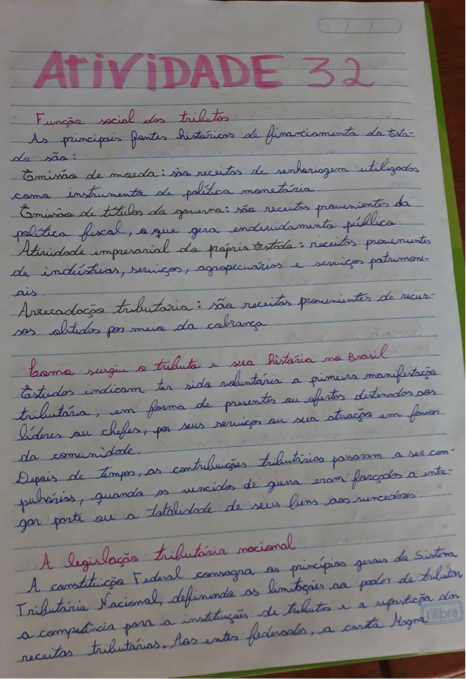 ATIVIDADE 32
Função social dos tributos
As principais fontes históricas de financiamento do Esta-
do são:
Emissão de moeda: são receitas de senhoriagem utilizadas
como instrumento de política monetária
Emissão de títulos do governo: são receitas provenientes da
política fiscal, o que gera endividamento público.
Atividade empresarial do próprio Estado: receitas provenientes
de indústrias, serviços, agropecuários e serviços patrimoni-
ais.
Arrecadação tributária: são receitas provenientes de recur-
sos obtidos por meio da cobrança
Como surgiu o tributo e sua história no Brasil
Estudos indicam ter sido voluntária a primeira manifestação
tributária, em forma de presentes ou ofertas destinados aos
líderes ou chefes, por seus serviços ou sua atuação em favor
da comunidade.
Depois de tempos, as contribuições tributárias passaram a ser com-
pulsórias, quando os vencidos de guerra eram forçados a entre-
gar parte ou a totalidade de seus bens aos vencedores
A legislação tributária nacional
A constituição Federal consagra os princípios gerais do Sistema
Tributário Nacional, definindo as limitações ao poder de tributar,
a competência para a instituições de tributos e a repartição das
receitas tributárias. Aos entes federados, a carta Magna
tilibra